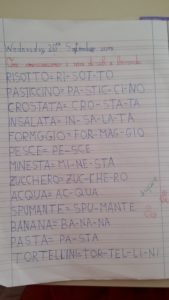 Wednesday 25th September 2019
RISOTTO= RI-SOT-TO
PASTICCINO= PA-STIC-CI-NO
CROSTATA= CRO-STA-TA
INSALATA= IN-SA-LA-TA
FORMAGGIO= FOR-MAG-GIO
PESCE= PE-SCE
MINESTA= MI-NE-STA
ZUCCHERO= ZUC-CHE-RO
ACQUA= AC-QUA
SPUMANTE= SPU-MANTE
BANANA= BA-NA-NA
PASTA= PA-STA
TORTELLINI= TOR-TEL-LI-NI